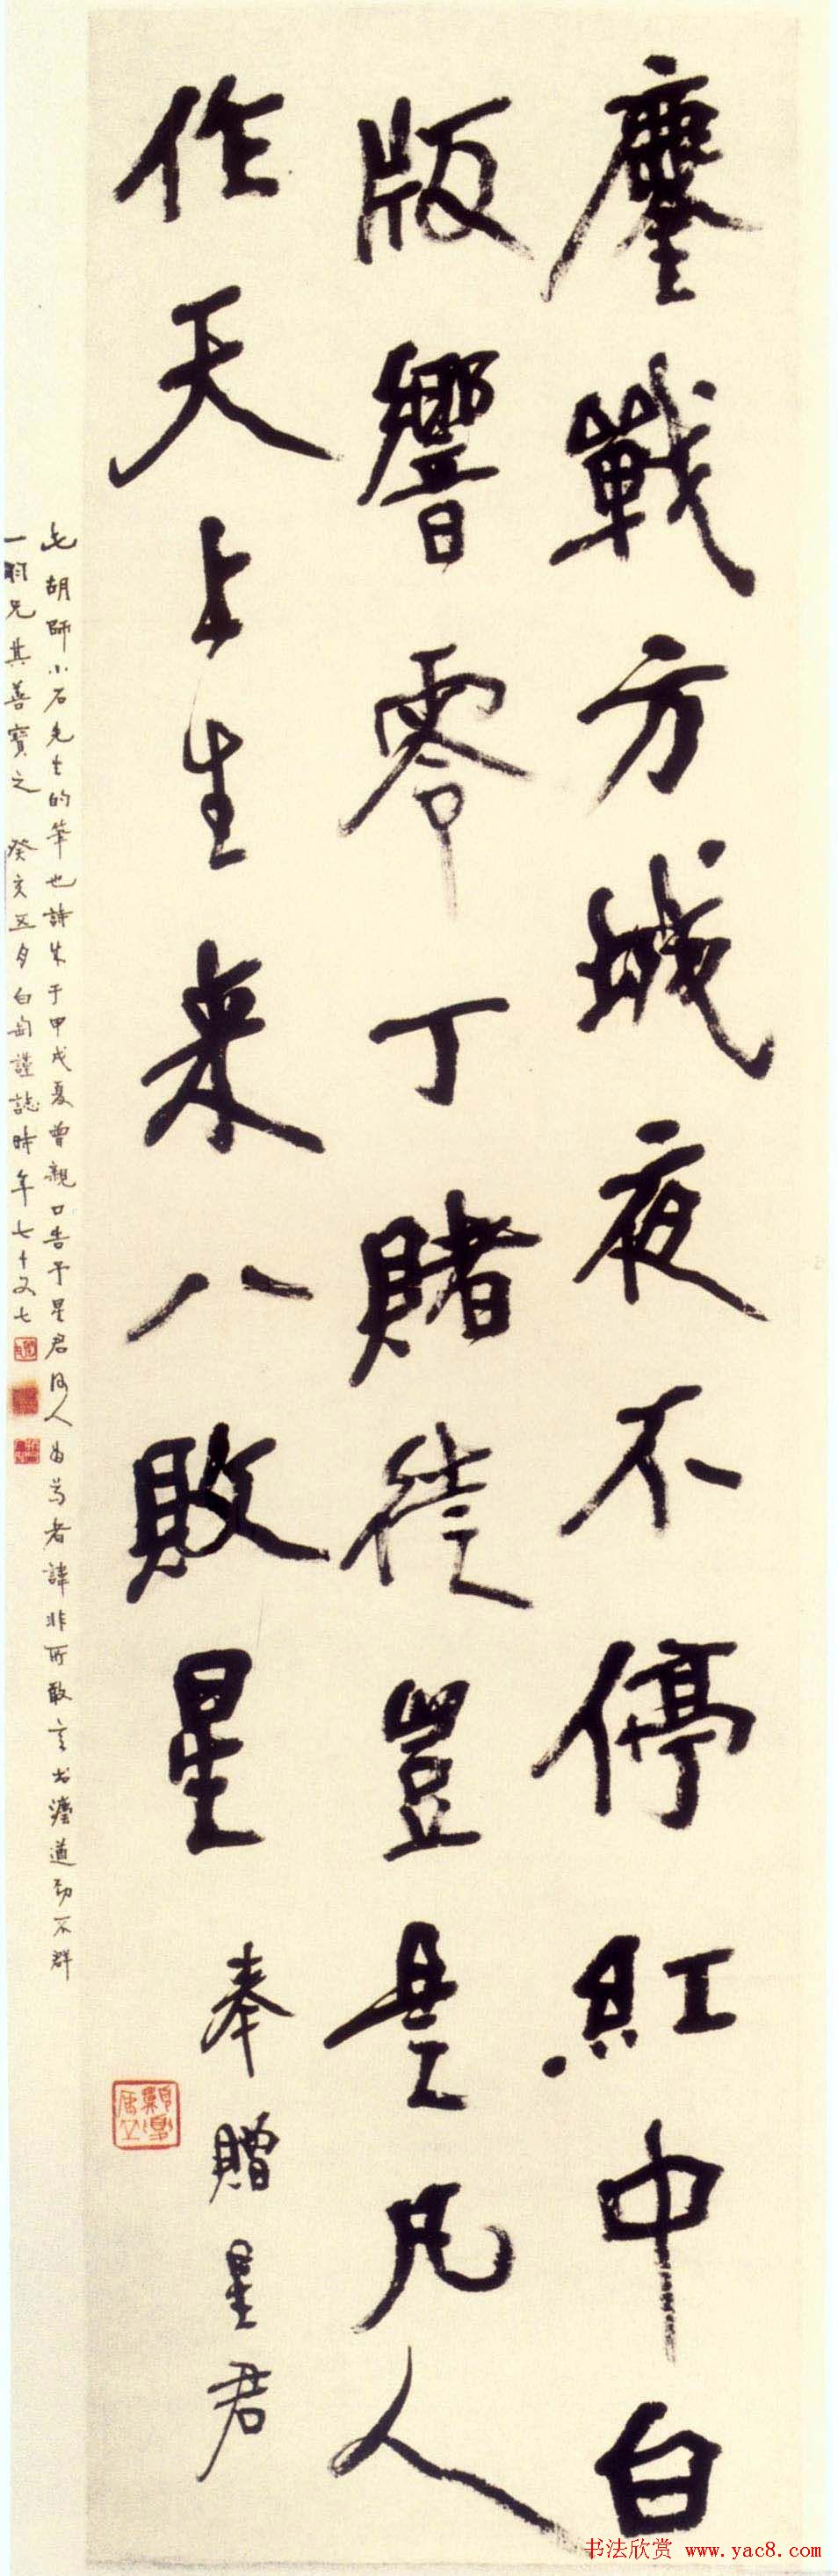 鏖戰方城夜不停紅中白
版響零丁賭徒豈是凡人
作天上生来八敗星
奉贈星君
此胡師小石先生的筆也詩成于甲戌夏曾親口告予星君何人為尊者諱非所敢言書遒勁不群
一羽兄其善寶之 癸亥五月白匋謹誌時年七十又七
书法欣赏 www.yac8.com